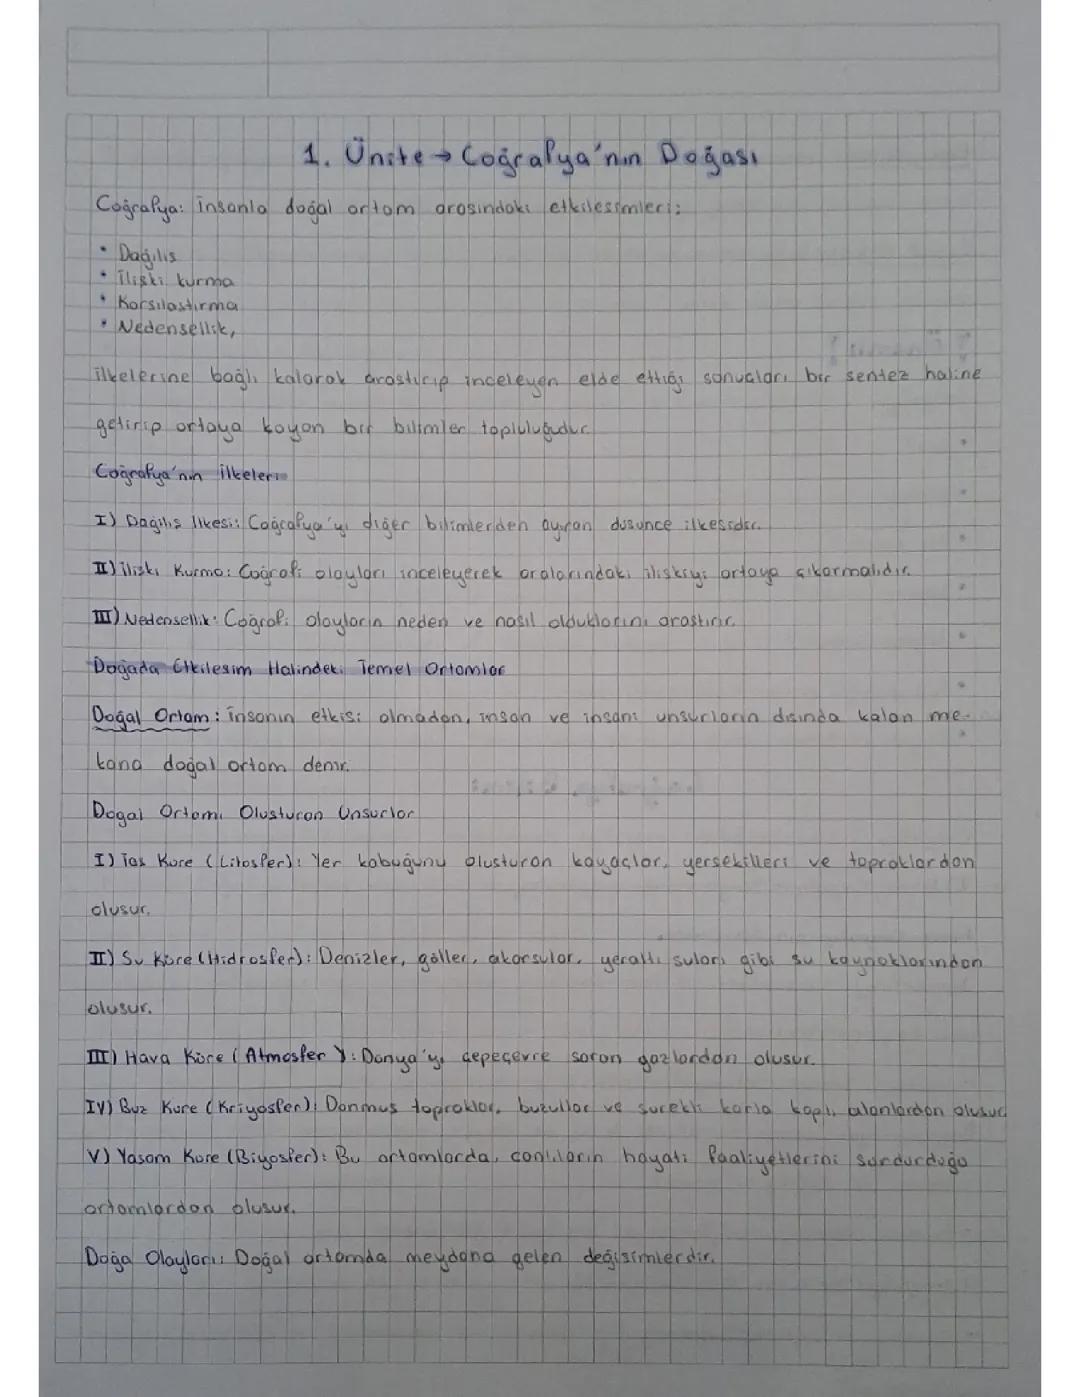 1. Ünite → Coğrafya'nın Doğası
Coğrafya: İnsanla doğal ortam arasındaki etkilesimleri;
• Dağılıs
• İlişki kurma
• Karsılastırma
• Nedensellik,
ilkelerine bağlı kalarak arastırıp inceleyen elde ettiği sonuçları bir sentez haline
getirip ortaya koyan bir bilimler topluluğudur.
Coğrafya'nın İlkeleri
I) Dağılış İlkesi: Coğrafya'yı diğer bilimlerden ayıran dusunce ilkesidir.
II) İliski Kurma: Coğrafi olayları inceleyerek aralarındaki iliskiyi ortaya çıkarmalıdır.
III) Nedensellik: Coğrafi olayların neden ve nasıl olduklarını arastırır.
Doğada Etkilesim Halindeki Temel Ortamlar
Doğal Ortam: İnsanın etkisi olmadan, insan ve insani unsurların dısında kalan me-
kana doğal ortam denir.
Dogal Ortamı Olusturan Unsurlar
I) Tas Kure (Litosfer): Yer kabuğunu olusturan kayaçlar, yersekilleri ve topraklardan
olusur.
II) Su Küre (Hidrosfer): Denizler, göller, akarsular, yeraltı suları gibi su kaynaklarından
olusur.
III) Hava Küre (Atmosfer): Dünya'yı çepeçevre saran gazlardan olusur.
IV) Buz Kure (Kriyosfer): Donmus topraklar, buzullar ve surekli karla kaplı alanlardan olusur.
V) Yasam Kure (Biyosfer): Bu ortamlarda, canlıların hayati faaliyetlerini surdurduğu
ortamlardan olusur.
Doğa Olayları: Doğal ortamda meydana gelen değisimlerdir.